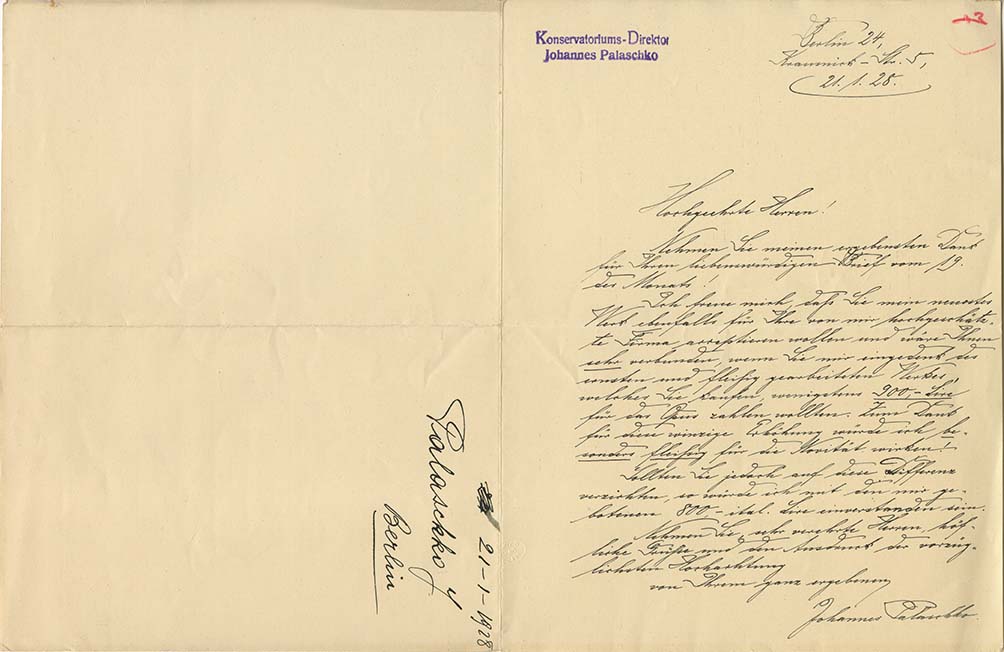 Konservatoriums-Direktor
Johannes Palaschko
Berlin 24,
Str. 5,
21. 1. 28.
Hochgeehrte Herren!
Nehmen Sie meinen ergebensten Dank
für Ihren liebenswürdigen Brief vom 19.
des Monats!
Ich freue mich, daß Sie mein neuestes
Werk ebenfalls für Ihre von mir hochgeschätz-
te Firma acceptieren wollen und wäre Ihnen
sehr verbunden, wenn Sie mir eingedenk des
ernsten und fleißig gearbeiteten Werkes,
welches Sie kaufen, wenigstens 900,- Lire
für das Opus zahlen wollten. Zum Dank
für diese winzige Erhöhung würde ich be-
sonders fleißig für die Novität wirken!
Sollten Sie jedoch auf diese Differenz
verzichten, so würde ich mit den mir ge-
botenen 800,- ital. Lire einverstanden sein.
Nehmen Sie, sehr verehrte Herren, höf-
liche Grüße und den Ausdruck der vorzüg-
lichsten Hochachtung
von Ihrem ganz ergebenen
Johannes Palaschko.
21-1-1928
Palaschko J
Berlin